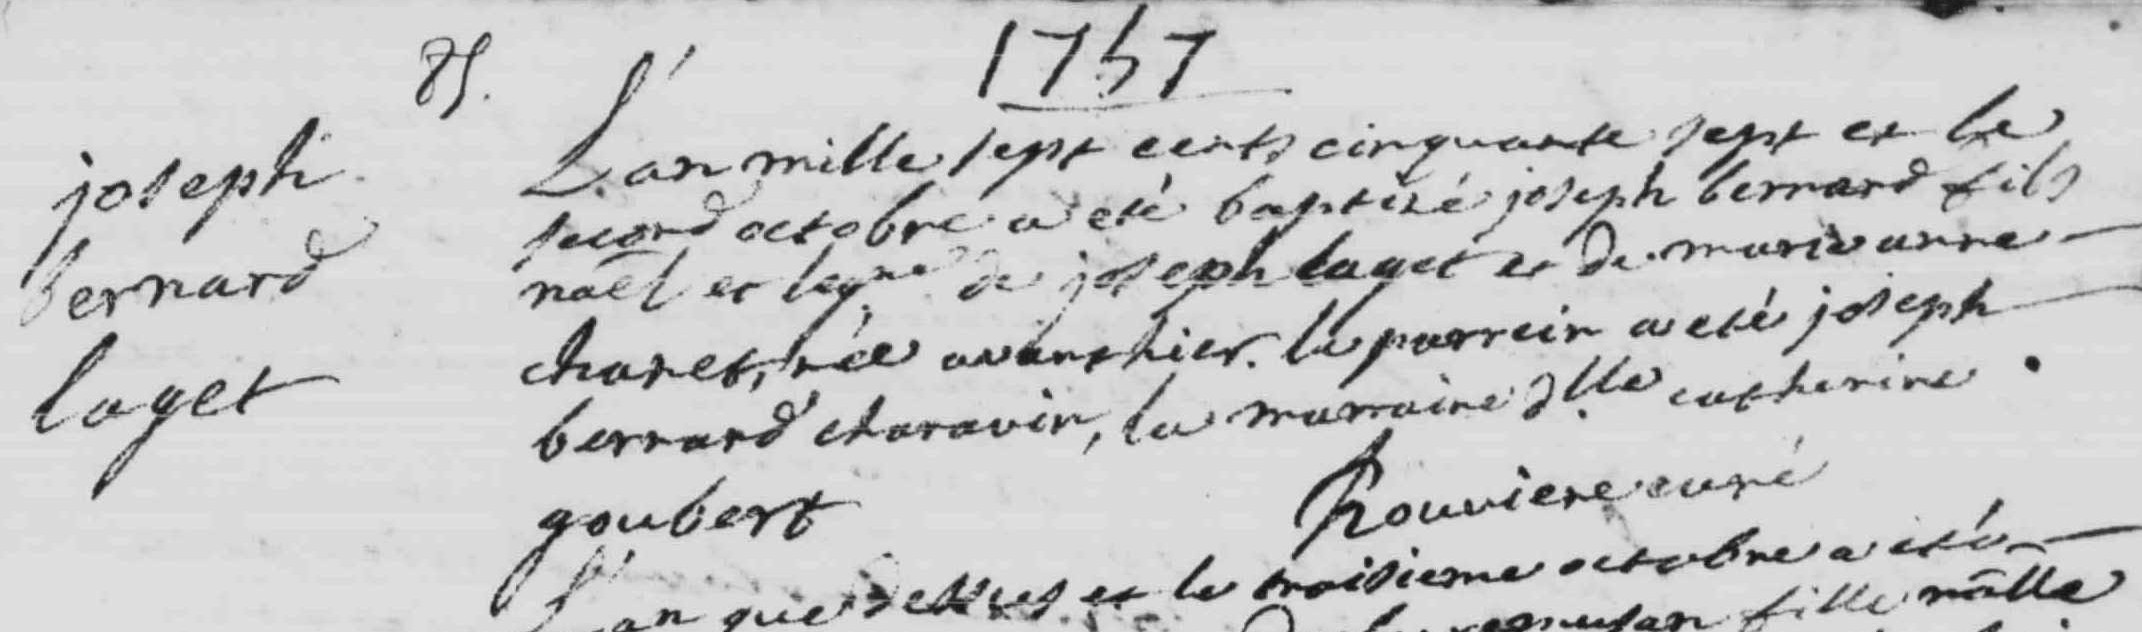 85.
1757
joseph
bernard
laget
L'an mille sept cents cinquante sept et le
second octobre a eté baptisé joseph bernard fils
nãel et legme de joseph laget et de marie anne
charet, née avanthier. le parrein a eté joseph
bernard charavin, la marraine dlle catherine
goubert
Rouviere curé
L'an que dessus et le troisieme octobre a eté
fille nãlle